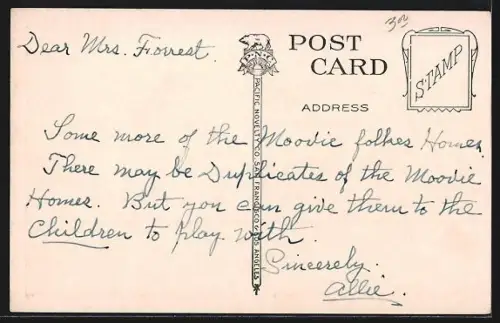 Dear Mrs. Forrest.
3.00
POST
CARD
STAMP
P.N.C.
ADDRESS
PACIFIC NOVELTY CO. SAN FRANCISCO & LOS ANGELES
Some more of the Moovie folkes Homes.
There may be Duplicates of the Moovie
Homes. But you can give them to the
Children to play with.
Sincerely.
Allie.